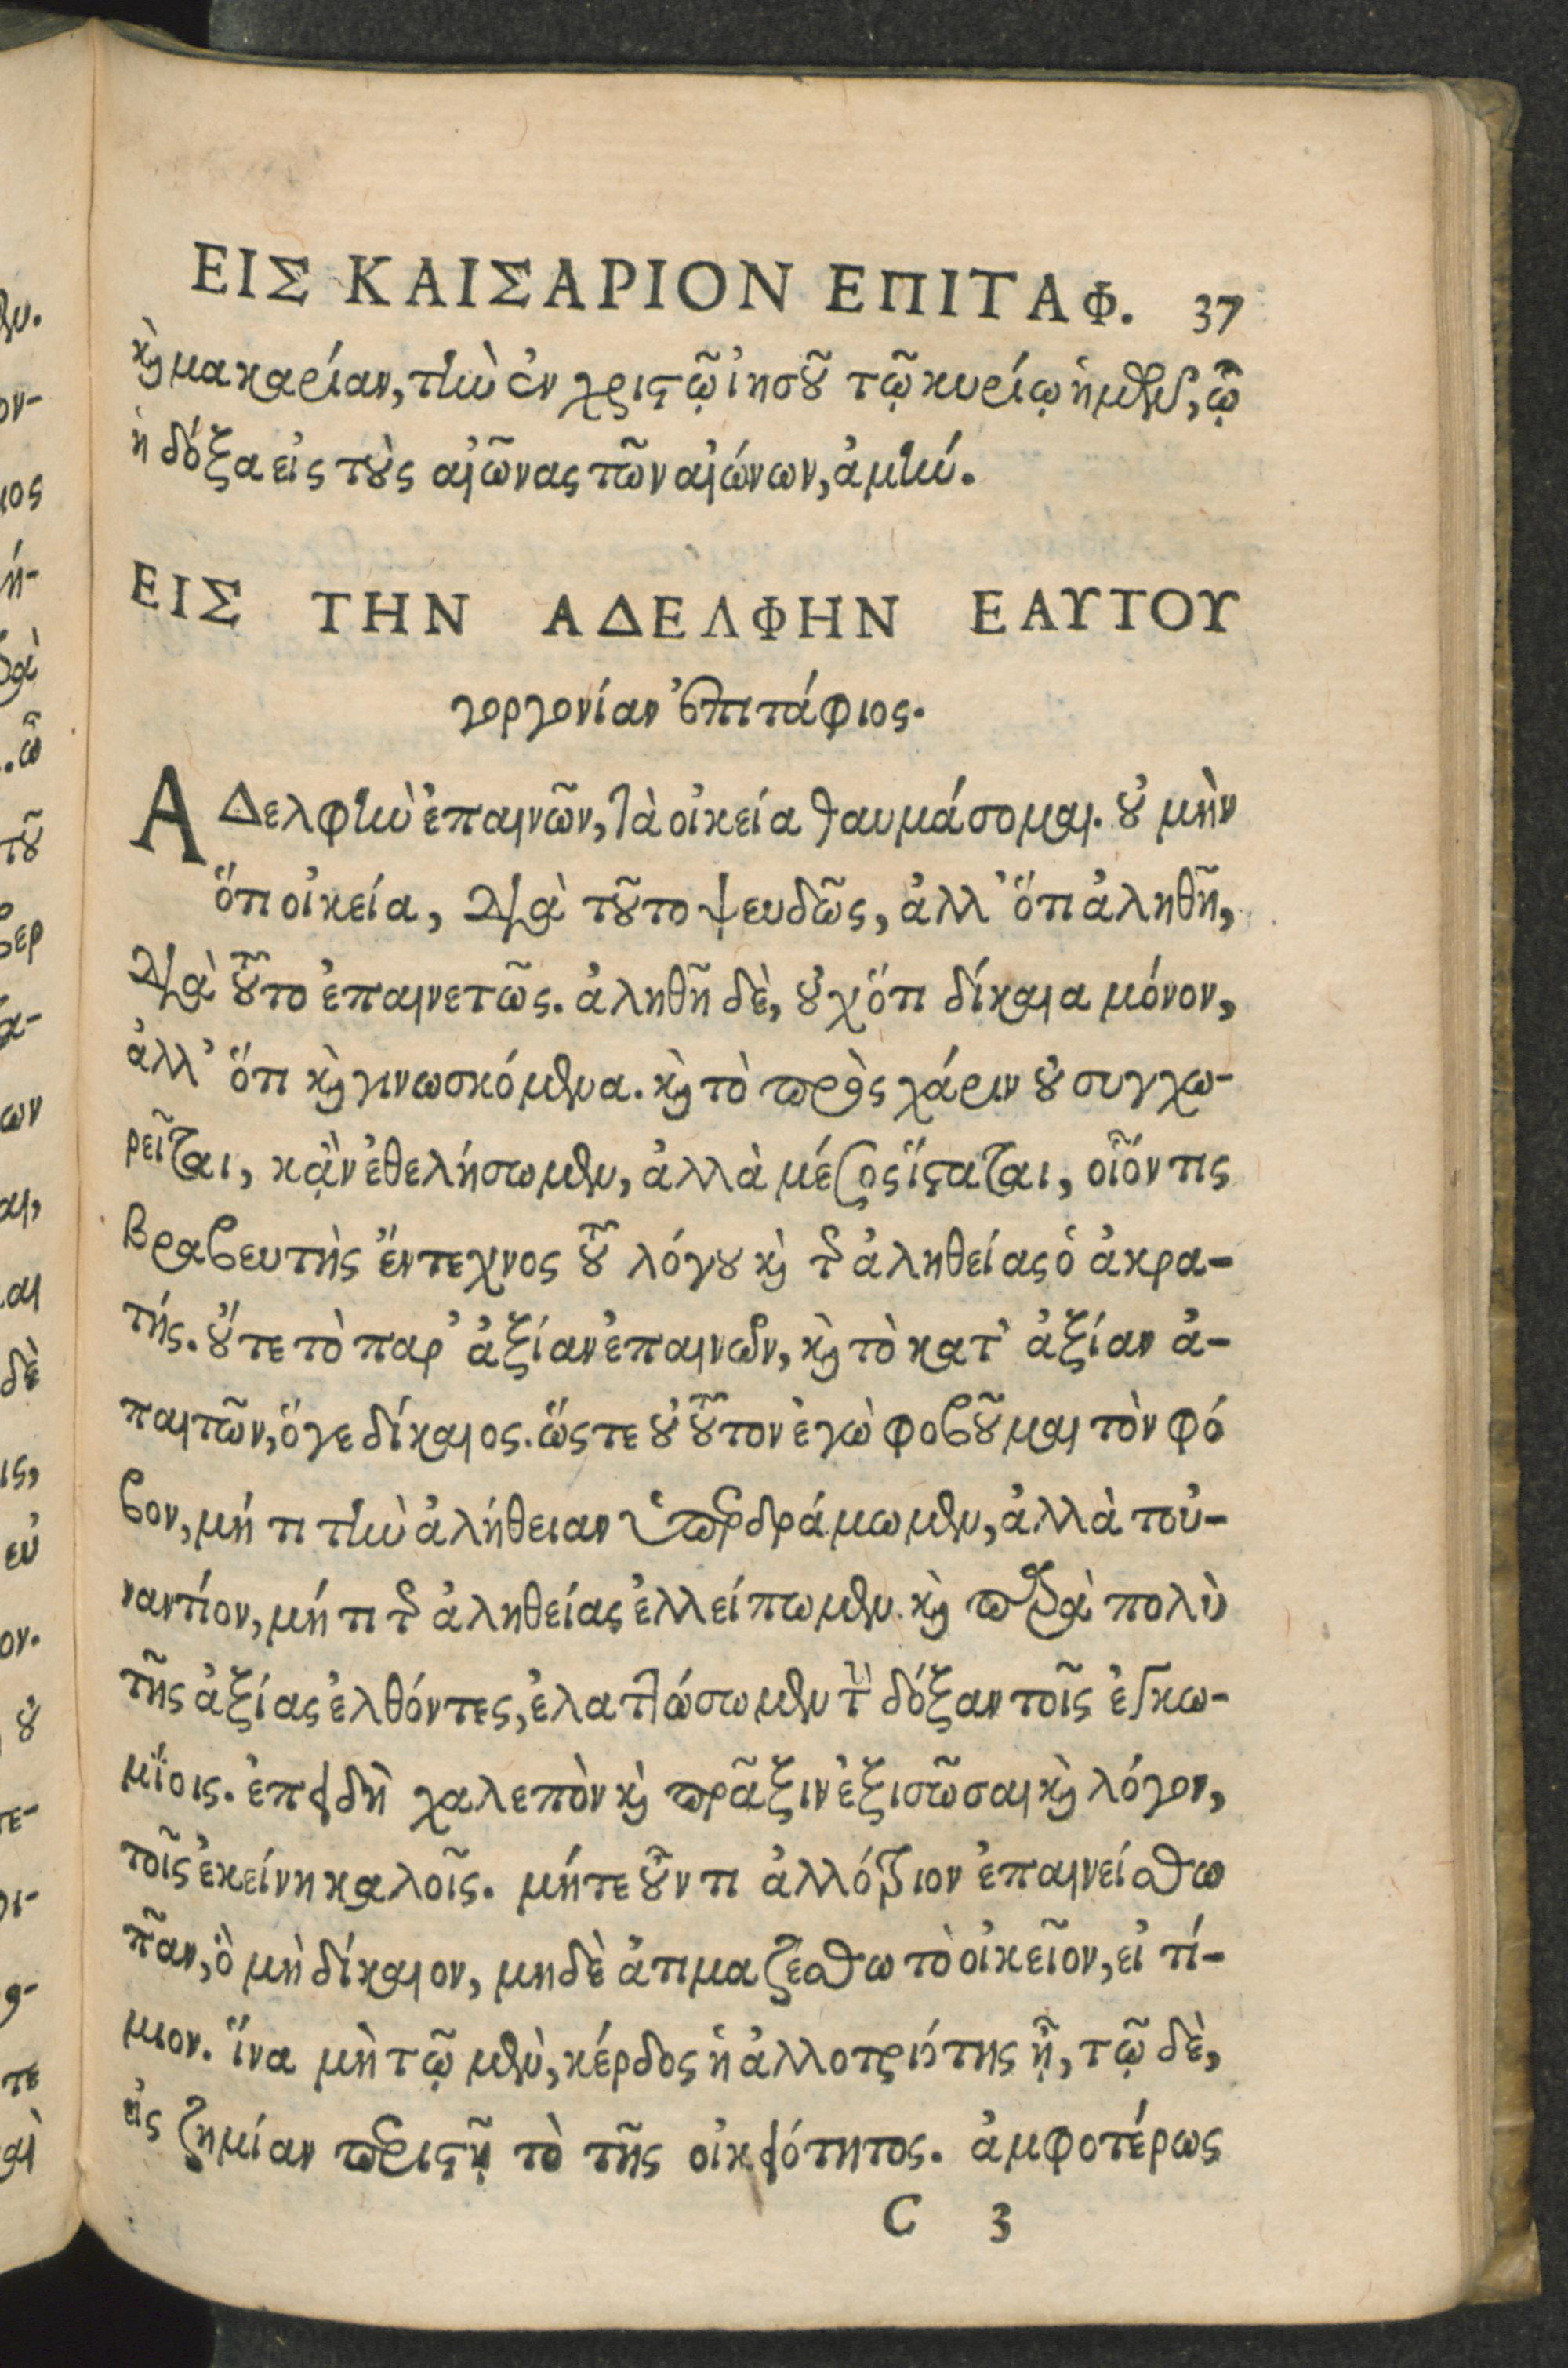 ΕΙΣ ΚΑΙΣΑΡΙΟΝ ΕΠΙΤΑΦ. 37
καὶ μακαρίαν, τὴν ἐν χριστῷ ἰησοῦ τῷ κυρίῳ ἡμῶν, ᾧ
ἡ δόξα εἰς τοὺς αἰῶνας τῶν αἰώνων, ἀμήν.
ΕΙΣ ΤΗΝ ΑΔΕΛΦΗΝ ΕΑΥΤΟΥ
γοργονίαν ἐπιτάφιος.
ΑΔελφὴν ἐπαινῶν, τὰ οἰκεία θαυμάσομαι. οὐ μὴν
ὅτι οἰκεία, διὰ τοῦτο ψευδῶς, ἀλλ' ὅτι ἀληθῆ,
διὰ τοῦτο ἐπαινετῶς. ἀληθῆ δὲ, οὐχ ὅτι δίκαια μόνον,
ἀλλ' ὅτι καὶ γινωσκόμενα. καὶ τὸ πρὸς χάριν οὐ συγχω-
ρεῖται, κᾂν ἐθελήσωμεν, ἀλλὰ μέσος ἵσταται, οἷόν τις
βραβευτὴς ἔντεχνος τοῦ λόγου καὶ τῆς ἀληθείας ὁ ἀκρα-
τής. οὔτε τὸ παρ' ἀξίαν ἐπαινῶν, καὶ τὸ κατ' ἀξίαν ἀ-
παιτῶν, ὅγε δίκαιος. ὥστε οὐ τοῦτον ἐγὼ φοβοῦμαι τὸν φό
βον, μή τι τὴν ἀλήθειαν ὑπερδράμωμεν, ἀλλὰ τοὐ-
ναντίον, μή τι τῆς ἀληθείας ἐλλείπωμεν. καὶ παρὰ πολὺ
τῆς ἀξίας ἐλθόντες, ἐλαττώσωμεν τὴν δόξαν τοῖς ἐγκω-
μίοις. ἐπειδὴ χαλεπὸν καὶ πρᾶξιν ἐξισῶσαι καὶ λόγον,
τοῖς ἐκείνη καλοῖς. μήτε οὖν τι ἀλλότριον ἐπαινείσθω
πᾶν, ὃ μὴ δίκαιον, μηδὲ ἀτιμαζέσθω τὸ οἰκεῖον, εἰ τί-
μιον. ἵνα μὴ τῷ μὲν, κέρδος ἡ ἀλλοτριότης ᾖ, τῷ δὲ,
εἰς ζημίαν περιστῇ τὸ τῆς οἰκειότητος. ἀμφοτέρως
C 3